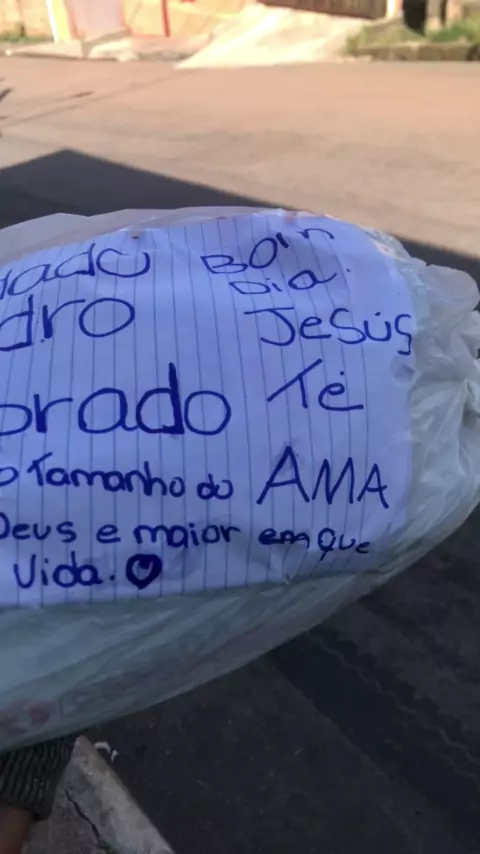 dado BOM
DIa.
dro Jesús
rado Te
o Tamanho do AMA
Deus e maior em que
Vida.